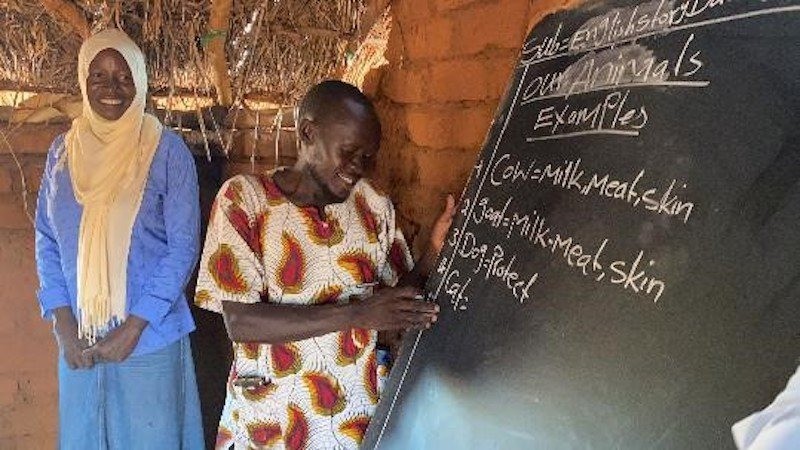 Sub=English story
Our Animals
Examples
1) Cow=Milk,Meat,skin
2) goat=Milk-Meat, skin
3) Dog=Protect
4) Cat=